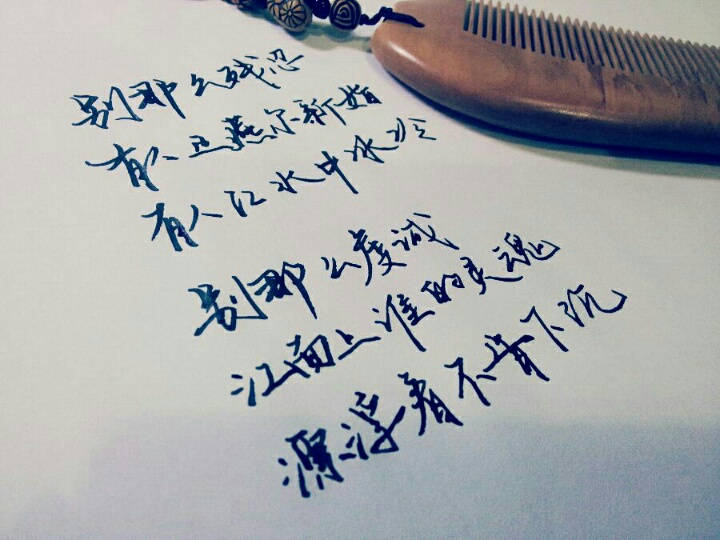 别那么残忍
有人正燕尔新婚
有人江水中冰冷
别那么虔诚
江面上谁的灵魂
漂浮着不肯下沉